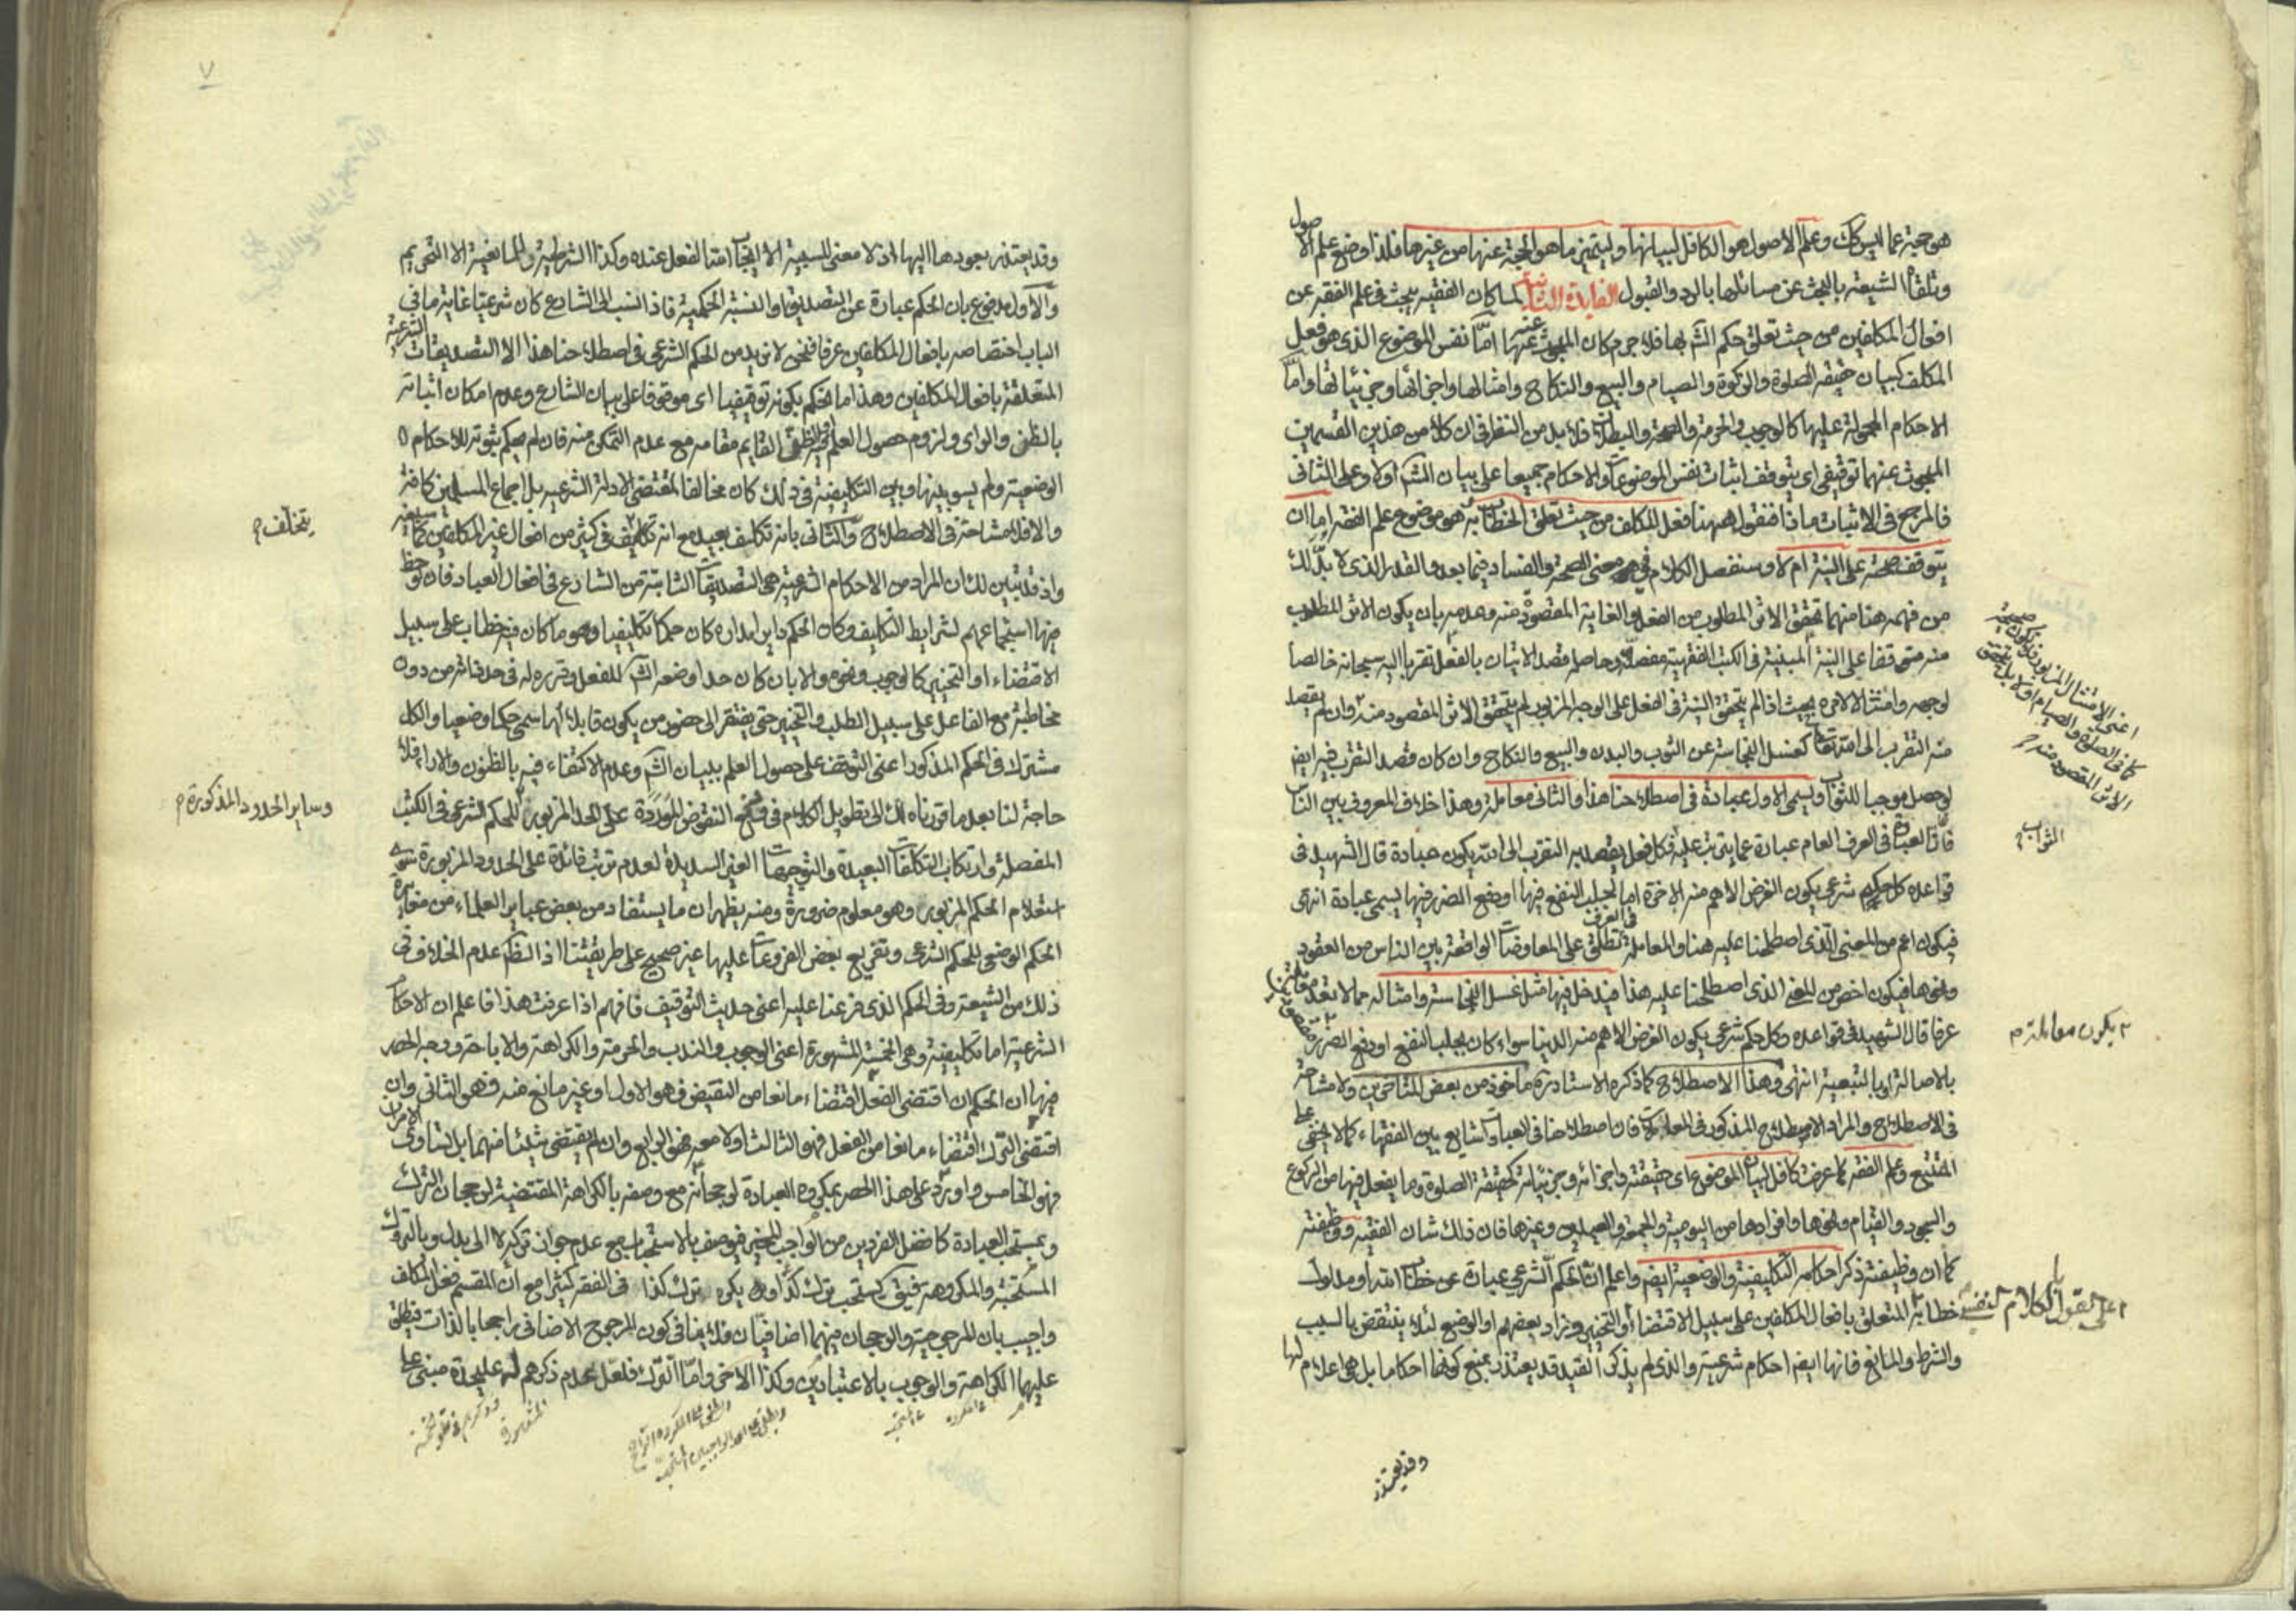 هو حجة عما ليس كك وعلم الاصول هو الكافل لبيانها وليتميز ما هو الحجة عنها من غيرها فلذا وضع علم الاصول
وتلقاه الشيعة بالبحث عن مسائلها بالرد والقبول الفايدة الثانية لما كان الفقيه يبحث في علم الفقه عن
افعال المكلفين من حيث تعلق حكم الشم بها فلا جرم كان المبحوث عنه عنها امّا نفس الموضوع الذي هو فعل
المكلف كبيان حقيقة الصلوة والزكوة والصيام والبيع والنكاح وامثالها واجزائها وجزئياتها وامّا
الاحكام المحمولة عليها كالوجوب والحرمة والصحة والبطلان فلا بد من النظر في ان كلا من هذين القسمين
المبحوث عنهما توقيفي اي يتوقف اثبات نفس الموضوعات والاحكام جميعا على بيان الشم اولا وعلى الثاني
فالمرجع في الاثبات ماذا فنقول ههنا فعل المكلف من حيث تعلق الخطاب به هو موضوع علم الفقه اما ان
يتوقف صحته على النية ام لا وسنفصل الكلام في معنى الصحة والفساد فيما بعد والقدر الذي لا بد لك
من فهمه هنا منهما تحقق الاثر المطلوب من الفعل والغاية المقصودة منه وعدمه بان يكون الاثر المطلوب
منه متوقفا على النية المبينة في الكتب الفقهية مفصلا وحاصله قصد الاتيان بالفعل تقربا اليه سبحانه خالصا
لوجهه وامتثالا لامره بحيث اذا لم يتحقق النية في الفعل على الوجه المزبور لم يتحقق الاثر المقصود منه وان لم يقصد
منه التقرب الى الله تعالى كغسل النجاسة عن الثوب والبدن والبيع والنكاح وان كان قصد التقرب فيه ايض
لوجهه موجبا للثواب ويسمى الاول عبادة في اصطلاحنا هذا والثاني معاملة وهذا خلاف المعروف بين الناس
فان العبادة في العرف العام عبارة عما يترتب عليه فكل فعل يقصد به التقرب الى الله يكون عبادة قال الشهيد في
قواعده كل حكم شرعي يكون الغرض الاهم منه الاخرة اما لجلب النفع فيها او دفع الضرر فيها يسمى عبادة انتهى
فيكون اعم من المعنى الذي اصطلحنا عليه هنا والمعاملة تطلق في العرف على المعاوضات الواقعة بين الناس من العقود
ونحوها فيكون اخص من المعنى الذي اصطلحنا عليه هذا فيدخل فيها مثل غسل النجاسة وامثاله مما لا يعد معاملة
عرفا قال الشهيد في قواعده وكل حكم شرعي يكون الغرض الاهم منه الدنيا سواء كان لجلب النفع او دفع الضرر
بالاصالة او بالتبعية انتهى وهذا الاصطلاح كما ذكره الاستاد ره ماخوذ من بعض المتاخرين ولا مشاحة
في الاصطلاح والمراد الاصطلاح المذكور في المعاملات فان اصطلاحنا في العبادات شايع بين الفقهاء كما لا يخفى على
المتتبع وعلم الفقه كما عرفت كافل لبيان الموضوع اي حقيقته واجزائه وجزئياته كحقيقة الصلوة وما يفعل فيها من الركوع
والسجود والقيام ونحوها وافرادها من اليومية والجمعة والعيدين وغيرها فان ذلك شان الفقيه ووظيفته
كما ان وظيفته ذكر احكامه التكليفية والوضعية ايض واعلم ان الحكم الشرعي عبارة عن خطاب الله او مدلول
خطابه المتعلق بافعال المكلفين على سبيل الاقتضاء او التخيير وزاد بعضهم او الوضع لئلا ينتقض بالسبب
والشرط والمانع فانها ايض احكام شرعية والذي لم يذكر القيد قد يعتذر بمنع كونها احكاما بل هي اعلام لها
وقد يعتذر
اعني الامتثال المزبور فلا يكون صحيحة
كما في الصلوة والصيام اولا بل يتحقق
الاثر المقصود منه م
الثواب م
يكون معاملة م
على القول بالكلام النفسي
٧
وقد يعتذر بعودهما اليها اذ لا معنى للسببية الا ايجاب الله الفعل عنده وكذا الشرطية والمانعية الا التحريم
والاول مدفوع بان الحكم عبارة عن التصديق والنسبة الحكمية فاذا نسب الى الشارع كان شرعيا غاية ما في
الباب اختصاصه بافعال المكلفين عرفا فنحن لا نريد من الحكم الشرعي في اصطلاحنا هذا الا التصديقات الشرعية
المتعلقة بافعال المكلفين وهذا ما نحكم بكونه توقيفيا اي موقوفا على بيان الشارع وعدم امكان اثباته
بالظن والراي ولزوم حصول العلم فيه او الظن القايم مقامه مع عدم التمكن منه فان لم يحكم بثبوته للاحكام
الوضعية ولم يسو بينها وبين التكليفية في ذلك كان مخالفا لمقتضى الادلة الشرعية بل اجماع المسلمين كافة
والا فلا مشاحة في الاصطلاح والثاني بانه تكلف بعيد مع انه يتخلف في كثير من افعال غير المكلفين كما سيجيء
واذ قد تبين لك ان المراد من الاحكام الشرعية هي التصديقات الثابتة من الشارع في افعال العباد فان لوحظ
فيها استجماعهم لشرايط التكليف وكان الحكم دايرا مداره كان حكما تكليفيا وهو ما كان فيه خطاب على سبيل
الاقتضاء او التخيير كالوجوب ونحوه والا بان كان حدا وضعه الشم للفعل وقرره له في حد ذاته من دون
مخاطبة مع الفاعل على سبيل الطلب والتخيير حتى يفتقر الى حضور من يكون قابلا لها سمي حكما وضعيا والكل
مشترك في الحكم المذكور اعني التوقف على حصول العلم ببيان الشم وعدم الاكتفاء فيه بالظنون والاراء فلا
حاجة لنا بعد ما قررناه لك الى تطويل الكلام في دفع النقوض الموردة على الحد المزبور للحكم الشرعي في الكتب
المفصلة وارتكاب التكلفات البعيدة والتوجيهات الغير السديدة لعدم ترتب فائدة على الحدود المزبورة سوى
استعلام الحكم المزبور وهو معلوم ضرورة ومنه يظهر ان ما يستفاد من بعض عباير العلماء من مغايرة
الحكم الوضعي للحكم الشرعي وتفريع بعض الفروعات عليها غير صحيح على طريقتنا اذ الظم عدم الخلاف في
ذلك من الشيعة وفي الحكم الذي فرعنا عليه اعني حديث التوقيف فافهم اذا عرفت هذا فاعلم ان الاحكام
الشرعية اما تكليفية وهي الخمسة المشهورة اعني الوجوب والندب والحرمة والكراهة والاباحة ووجه الحصر
فيها ان الحكم ان اقتضى الفعل اقتضاء مانعا من النقيض فهو الاول او غير مانع عنه فهو الثاني وان
اقتضى الترك اقتضاء مانعا من الفعل فهو الثالث او لا معه فهو الرابع وان لم يقتض شيئا منهما بل تساوى الامران
فهو الخامس واورد على هذا الحصر بمكروه العبادة لرجحانه مع وصفه بالكراهة المقتضية لرجحان الترك
وبمستحب العبادة كافضل الفردين من الواجب المخير فيوصف بالاستحباب مع عدم جواز تركه لا الى بدل وبالتروك
المستحبة والمكروهة فيق يستحب ترك كذا او يكره ترك كذا في الفقه كثيرا مع ان المقسم فعل المكلف
واجيب بان المرجوحية والرجحان فيهما اضافيان فلا ينافي كون المرجوح الاضافي راجحا بالذات فيطلق
عليهما الكراهة والوجوب بالاعتبارين وكذا الاخر واما التروك فلعل عدم ذكرهم لها عليحدة مبني على
يتخلف م
وساير الحدود المذكورة م